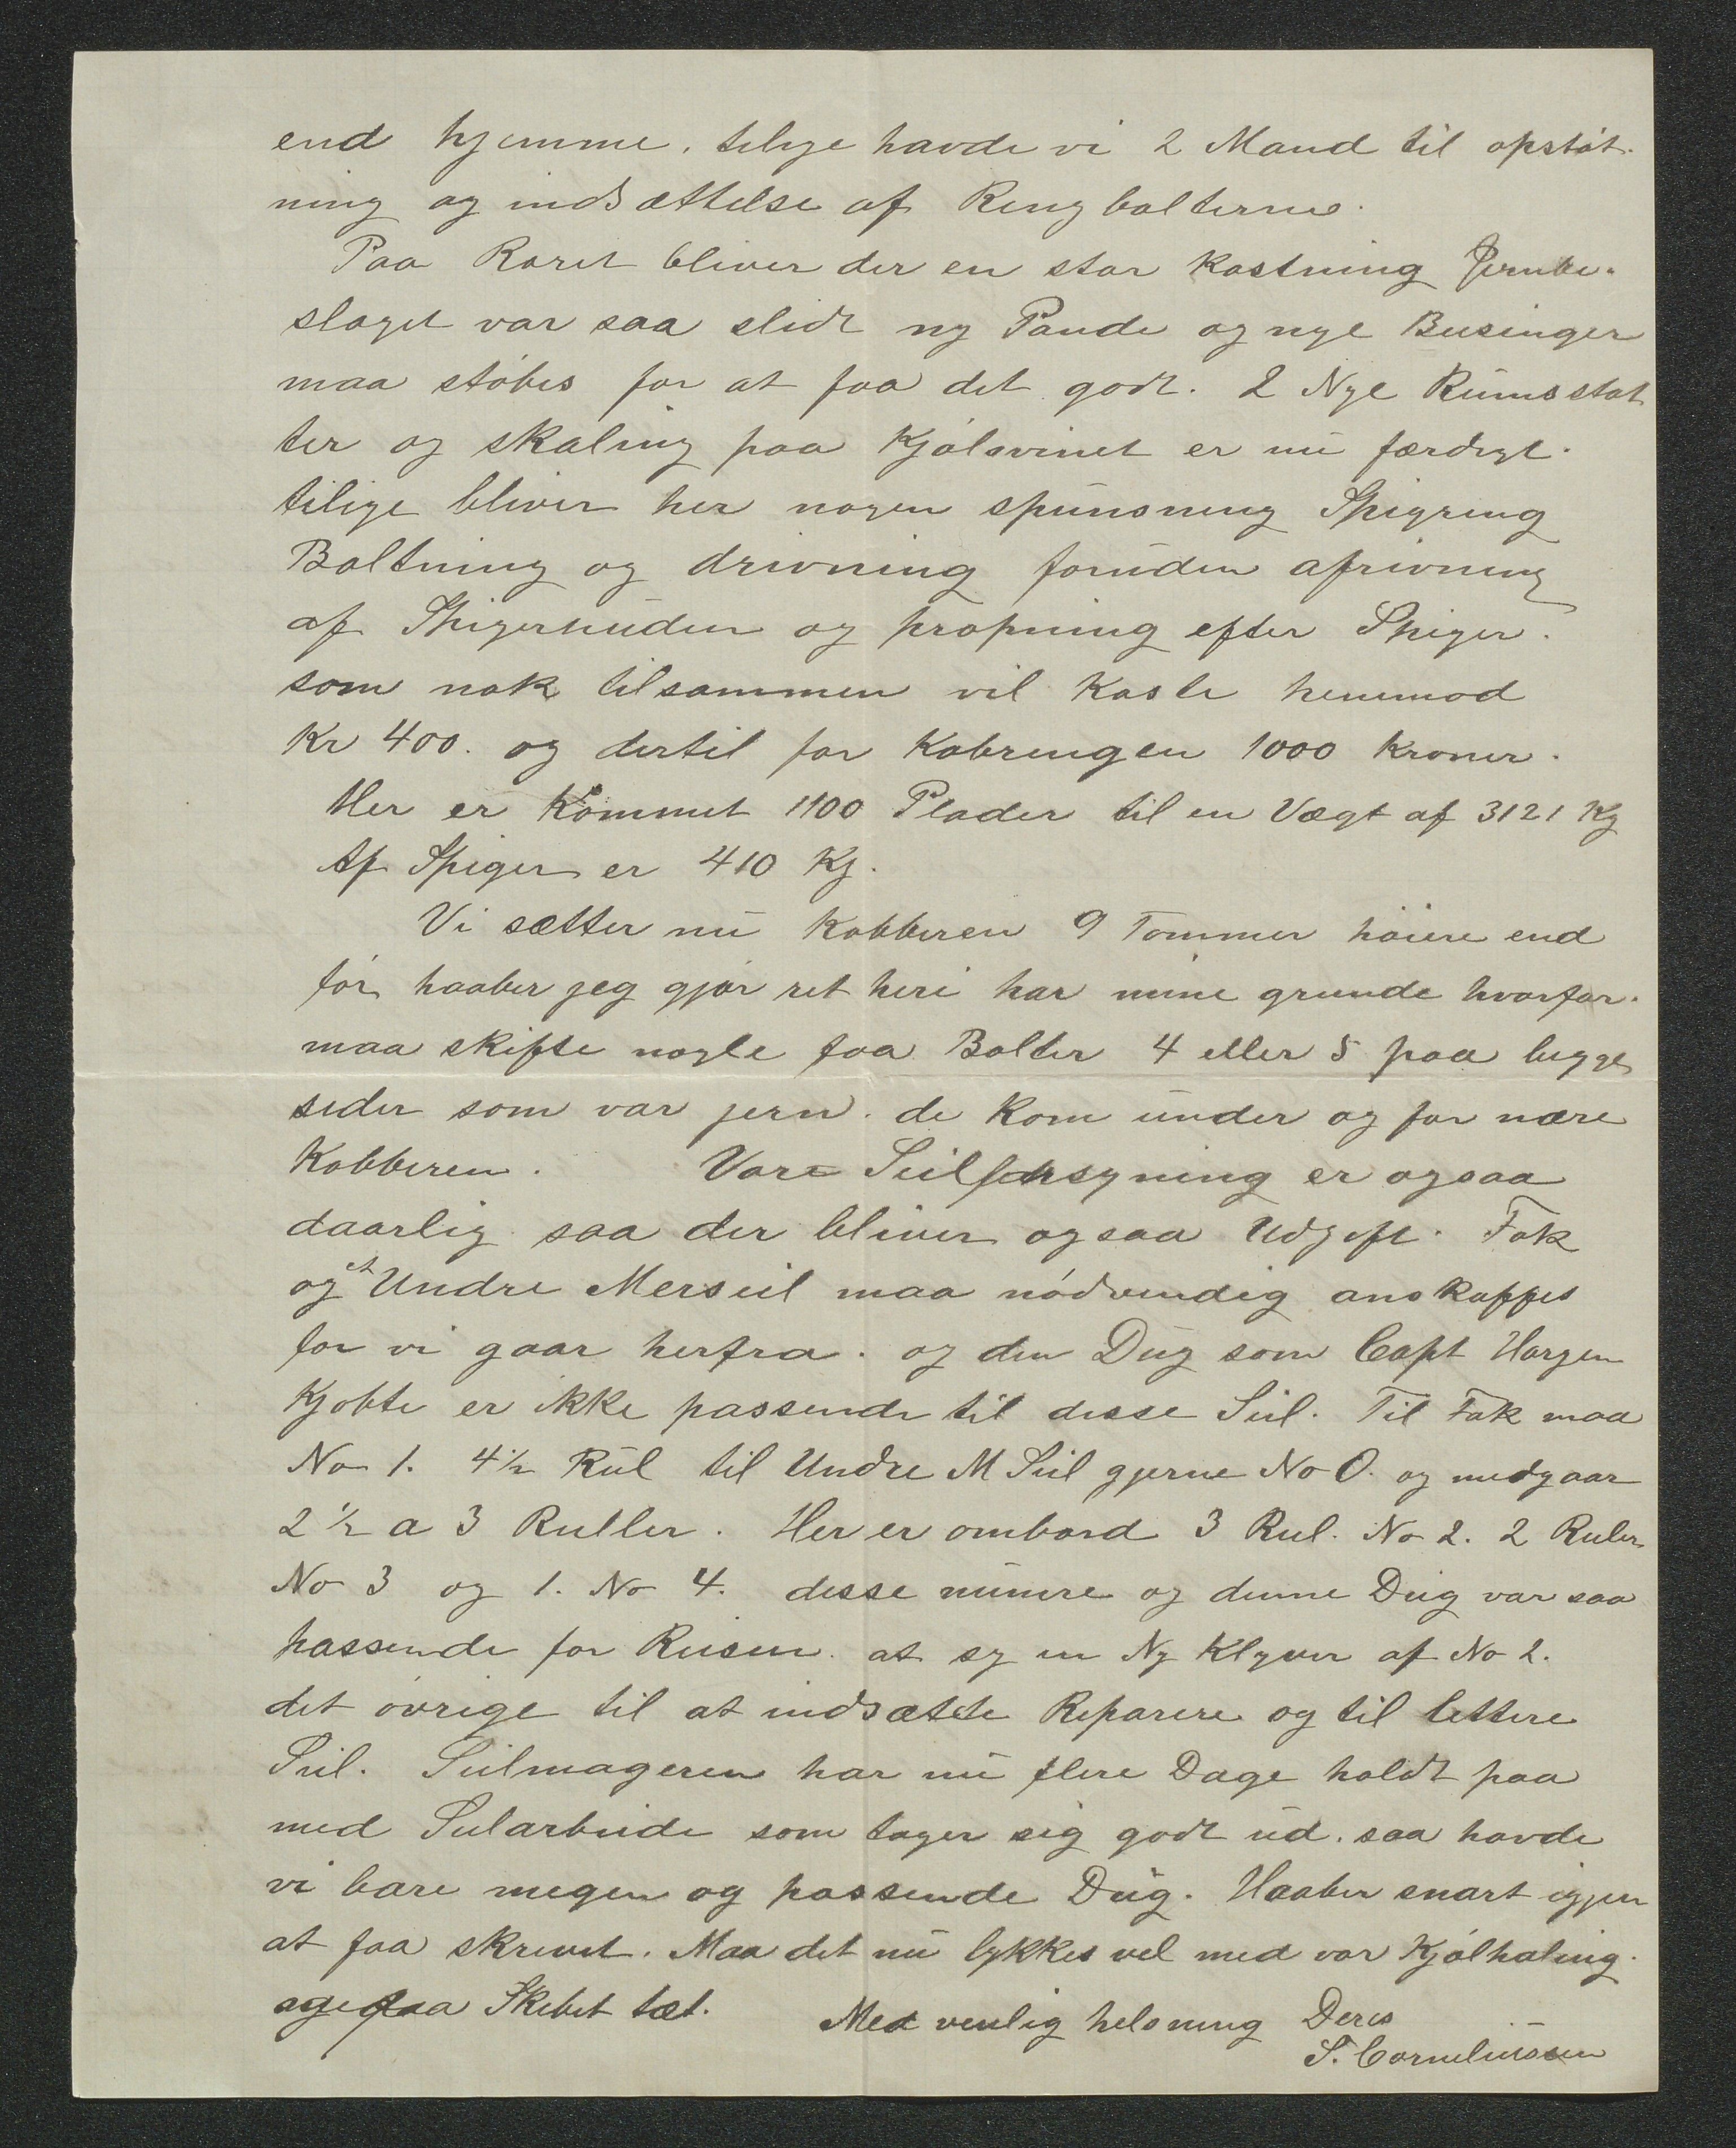 end hjemme. tilige havde vi 2 Mand til opstøt-
ning og indsættelse af Ringbolterne.
Paa Roret bliver der en stor Kostning Jernbe-
slaget var saa slidt ny Pande og nye Businger
maa støbes for at faa det godt. 2 Nye Rumsstøt
ter og skaling paa Kjølsvinet er nu færdigt.
tilige bliver her nogen spunsning Spigring
Boltning og drivning foruden afrivning
af Spigerhuden og propning efter Spiger.
som nok tilsammen vil Koste henimod
Kr 400. og dertil for Kobringen 1000 Kroner.
Her er Kommet 1100 Plader til en Vægt af 3121 Kg
Af Spiger er 410 Kg.
Vi sætter nu Kobberen 9 Tommer høiere end
før haaber jeg gjør ret heri har mine grunde hvorfor.
maa skifte nogle faa Bolter 4 eller 5 paa begge
sider som var jern. de Kom under og for nære
Kobberen. Vare Seilforsyning er ogsaa
daarlig saa der bliver ogsaa Udgift. Fok
og et Undre Merseil maa nødvendig anskaffes
før vi gaar herfra. og den Dug som Capt Horgen
Kjøbte er ikke passende til disse Seil. Til Fok maa
No 1. 4½ Rul til Undre M Seil gjerne No 0. og medgaar
2½ a 3 Ruller. Her er ombord 3 Rul. No 2. 2 Ruler
No 3 og 1. No 4. disse numre og denne Dug var saa
passende for Reisen. at sy en Ny Klyver af No 2.
det øvrige til at indsætte Reparere og til lettere
Seil. Seilmageren har nu flere Dage holdt paa
med Seilarbeide som tager sig godt ud. saa havde
vi bare megen og passende Dug. Haaber snart igjen
at faa skrevet. Maa det nu lykkes vel med vor Kjølhaling.
og faa Skibet tæt. Med venlig helsning Deres
S. Corneliussen